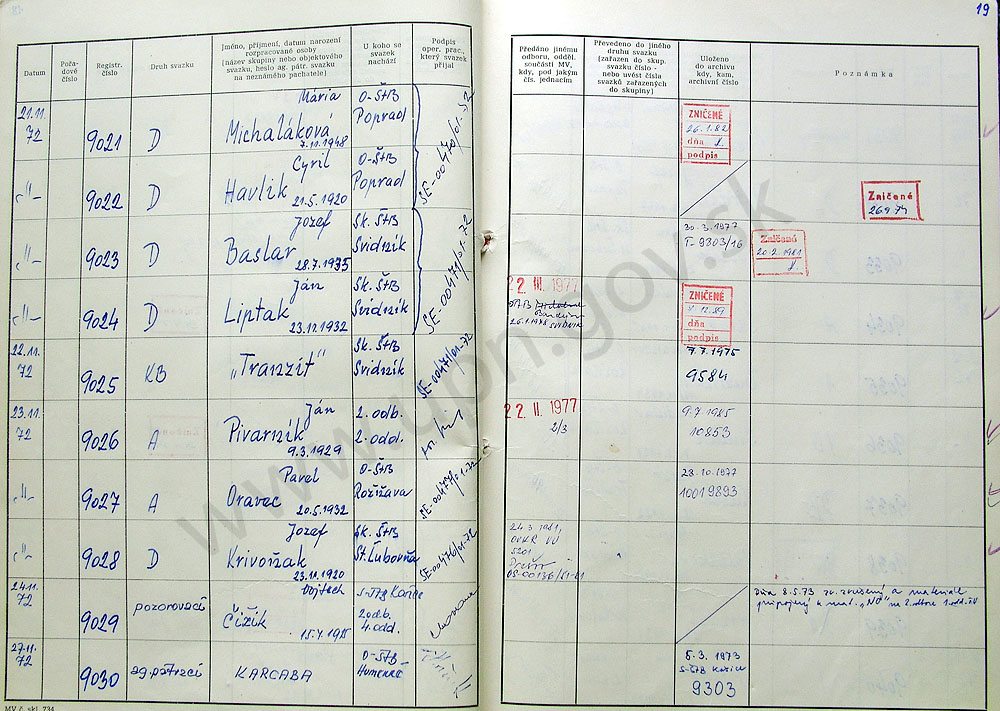 19
Datum
Pořadové číslo
Registr. číslo
Druh svazku
Jméno, příjmení, datum narození
rozpracované osoby
(název skupiny nebo objektového
svazku, heslo ag. pátr. svazku
na neznámého pachatele)
U koho se
svazek
nachází
Podpis
oper. prac.,
který svazek
přijal
Předáno jinému
odboru, odděl.
součásti MV,
kdy, pod jakým
čís. jednacím
Převedeno do jiného
druhu svazku
(zařazen do skup.
svazku číslo -
nebo uvést čísla
svazků zařazených
do skupiny)
Uloženo
do archivu
kdy, kam,
archivní číslo
Poznámka
21.11.
72
9021
D
Mária
Michaláková
7.11.1948
O-ŠtB
Poprad
SE-00470/01-72
ZNIČENÉ
26.1.82
dňa
podpis
-"-
9022
D
Cyril
Havlík
21.5.1920
O-ŠtB
Poprad
Zničené
26.9.74
-"-
9023
D
Jozef
Baslar
28.7.1935
Sk. ŠtB
Svidník
SE-00471/01-72
30.3.1977
T-9803/16
Zničené
20.2.1981
-"-
9024
D
Ján
Liptak
23.11.1932
Sk. ŠtB
Svidník
22 III. 1977
ZNIČENÉ
dňa
podpis
22.11.
72
9025
KB
„Tranzit"
Sk. ŠtB
Svidník
SE-00471/01-72
7.7.1975
9584
23.11.
72
9026
A
Ján
Pivarník
9.3.1929
2. odb.
2. odd.
22 II. 1977
2/3
9.7.1985
10853
-"-
9027
A
Pavel
Oravec
20.5.1932
O-ŠtB
Rožňava
28.10.1977
10019893
-"-
9028
D
Jozef
Krivoňak
23.11.1920
Sk. ŠtB
St. Ľubovňa
SE-00476/01-72
24.3.1981,
5201
Prešov
24.11.
72
9029
pozorovací
Vojtech
Čižik
2 odb.
4. odd.
Dňa 8.5.73 zv. zrušený a materiál
pripojený k mat. „NO" na 2. odbore 1. odd.
27.11.
72
9030
ag. pátrací
KARCABA
O-ŠtB
Humenné
5.3.1973
S-ŠtB Košice
9303
MV č. skl. 734
www.upn.gov.sk